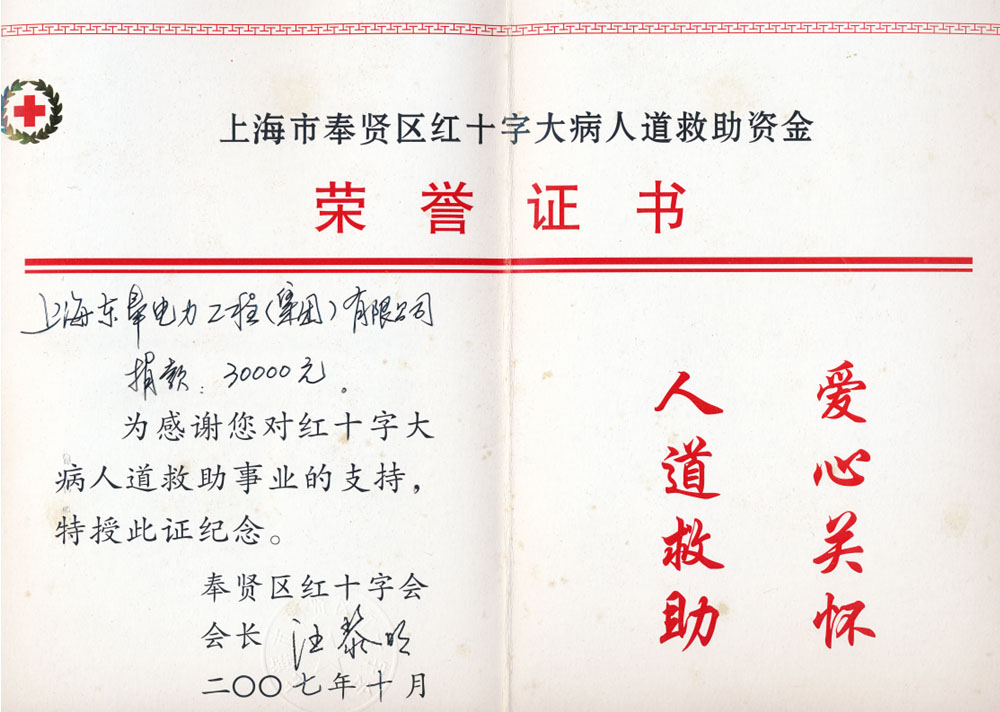 上海市奉贤区红十字大病人道救助资金
荣誉证书
上海东皋电力工程(集团)有限公司
捐款:30000元。
为感谢您对红十字大
病人道救助事业的支持,
特授此证纪念。
奉贤区红十字会
会长 汪黎明
二〇〇七年十月
爱心关怀
人道救助